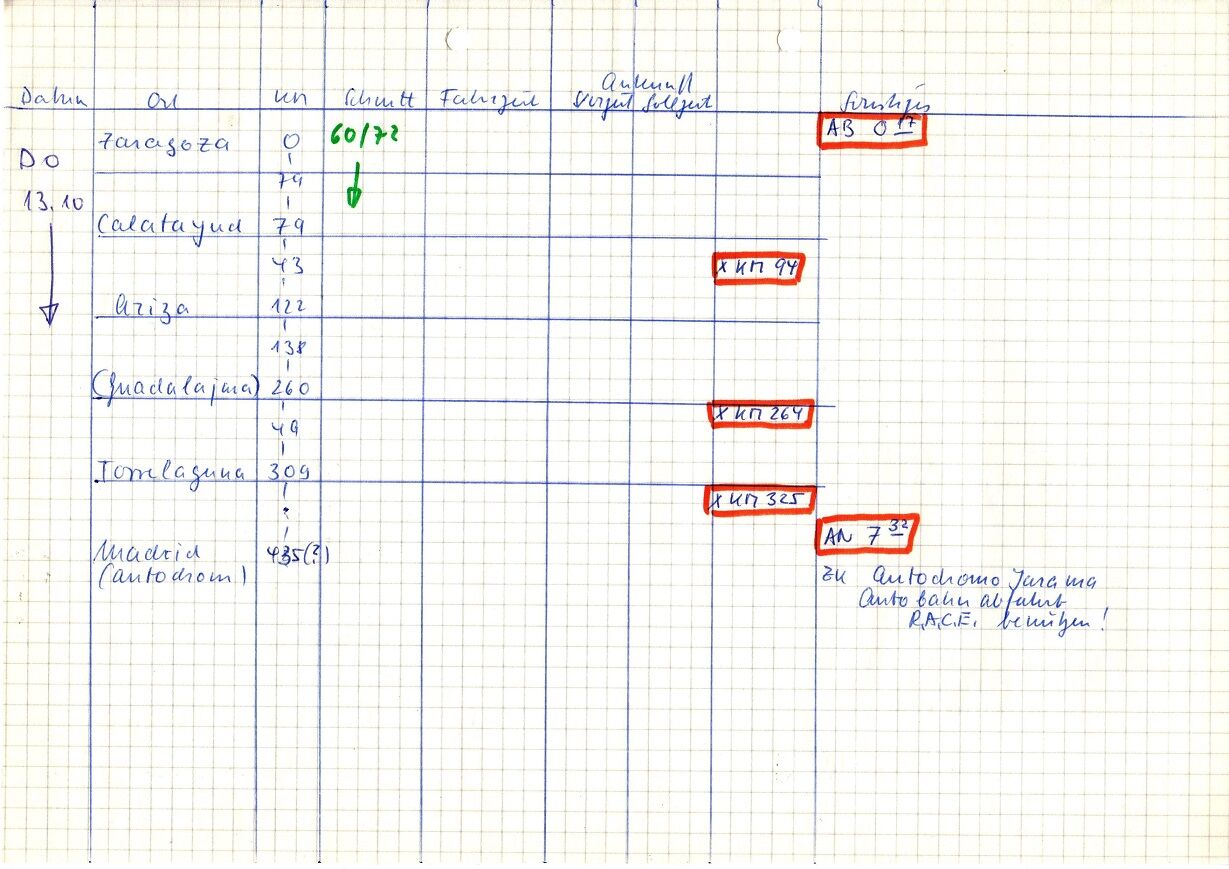 Ankunft
Datum Ort KM Schnitt Fahrzeit Vorzeit Sollzeit Sonstiges
Zaragoza 0 60/72 AB 0 17
DO
79
13.10
Calatayud 79
43 X KM 94
Ariza 122
138
(Guadalajara) 260
X KM 264
49
Torrelaguna 309
X KM 325
AN 7 32
Madrid 435(?)
(Autodrom)
zu Autodromo Jarama
Autobahnabfahrt
R.A.C.E. benützen!